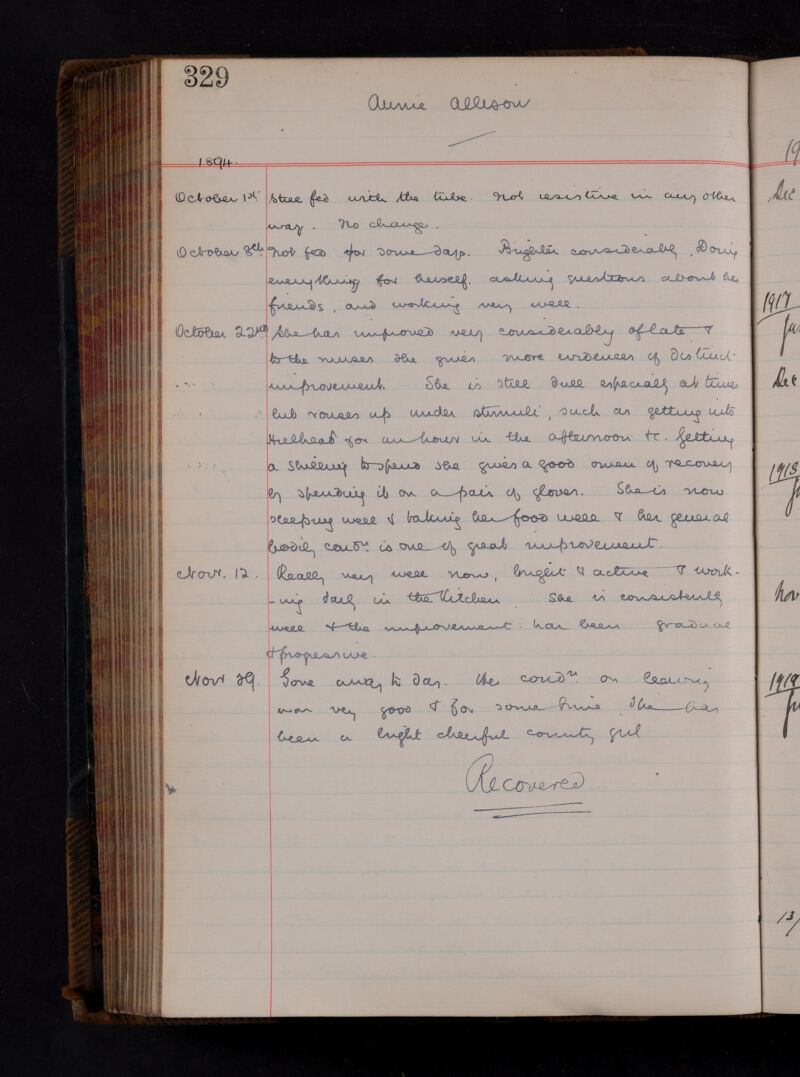 329
Annie Allison
1894.
October 1st Still fed with the tube. Not resistive in any other
way. No change.
October 8th Not fed for some days. Brighter considerably, Doing
everything for herself, asking questions about her
friends, and working very well.
October 22nd She has improved very considerably of late &
to the nurses she gives more evidences of distinct
improvement. She is still dull especially at times
but rouses up under stimuli, such as getting into
Hillhead for an hour in the afternoon &c. Getting
a shilling to spend she gives a good omen of recovery
by spending it on a pair of gloves. She is now
sleeping well & taking her food well & her general
bodily condn is one of great improvement.
Nov. 12. Really very well now, bright & active & work-
-ing daily in the Kitchen. She is consistently
well & the improvement has been gradual
& progressive.
Nov 29. Gone away to day. Her condn on leaving
was very good & for some time she has
been a bright cheerful country girl
Recovered
19
Dec
1917
Dec
1918
Nov
1919
13/